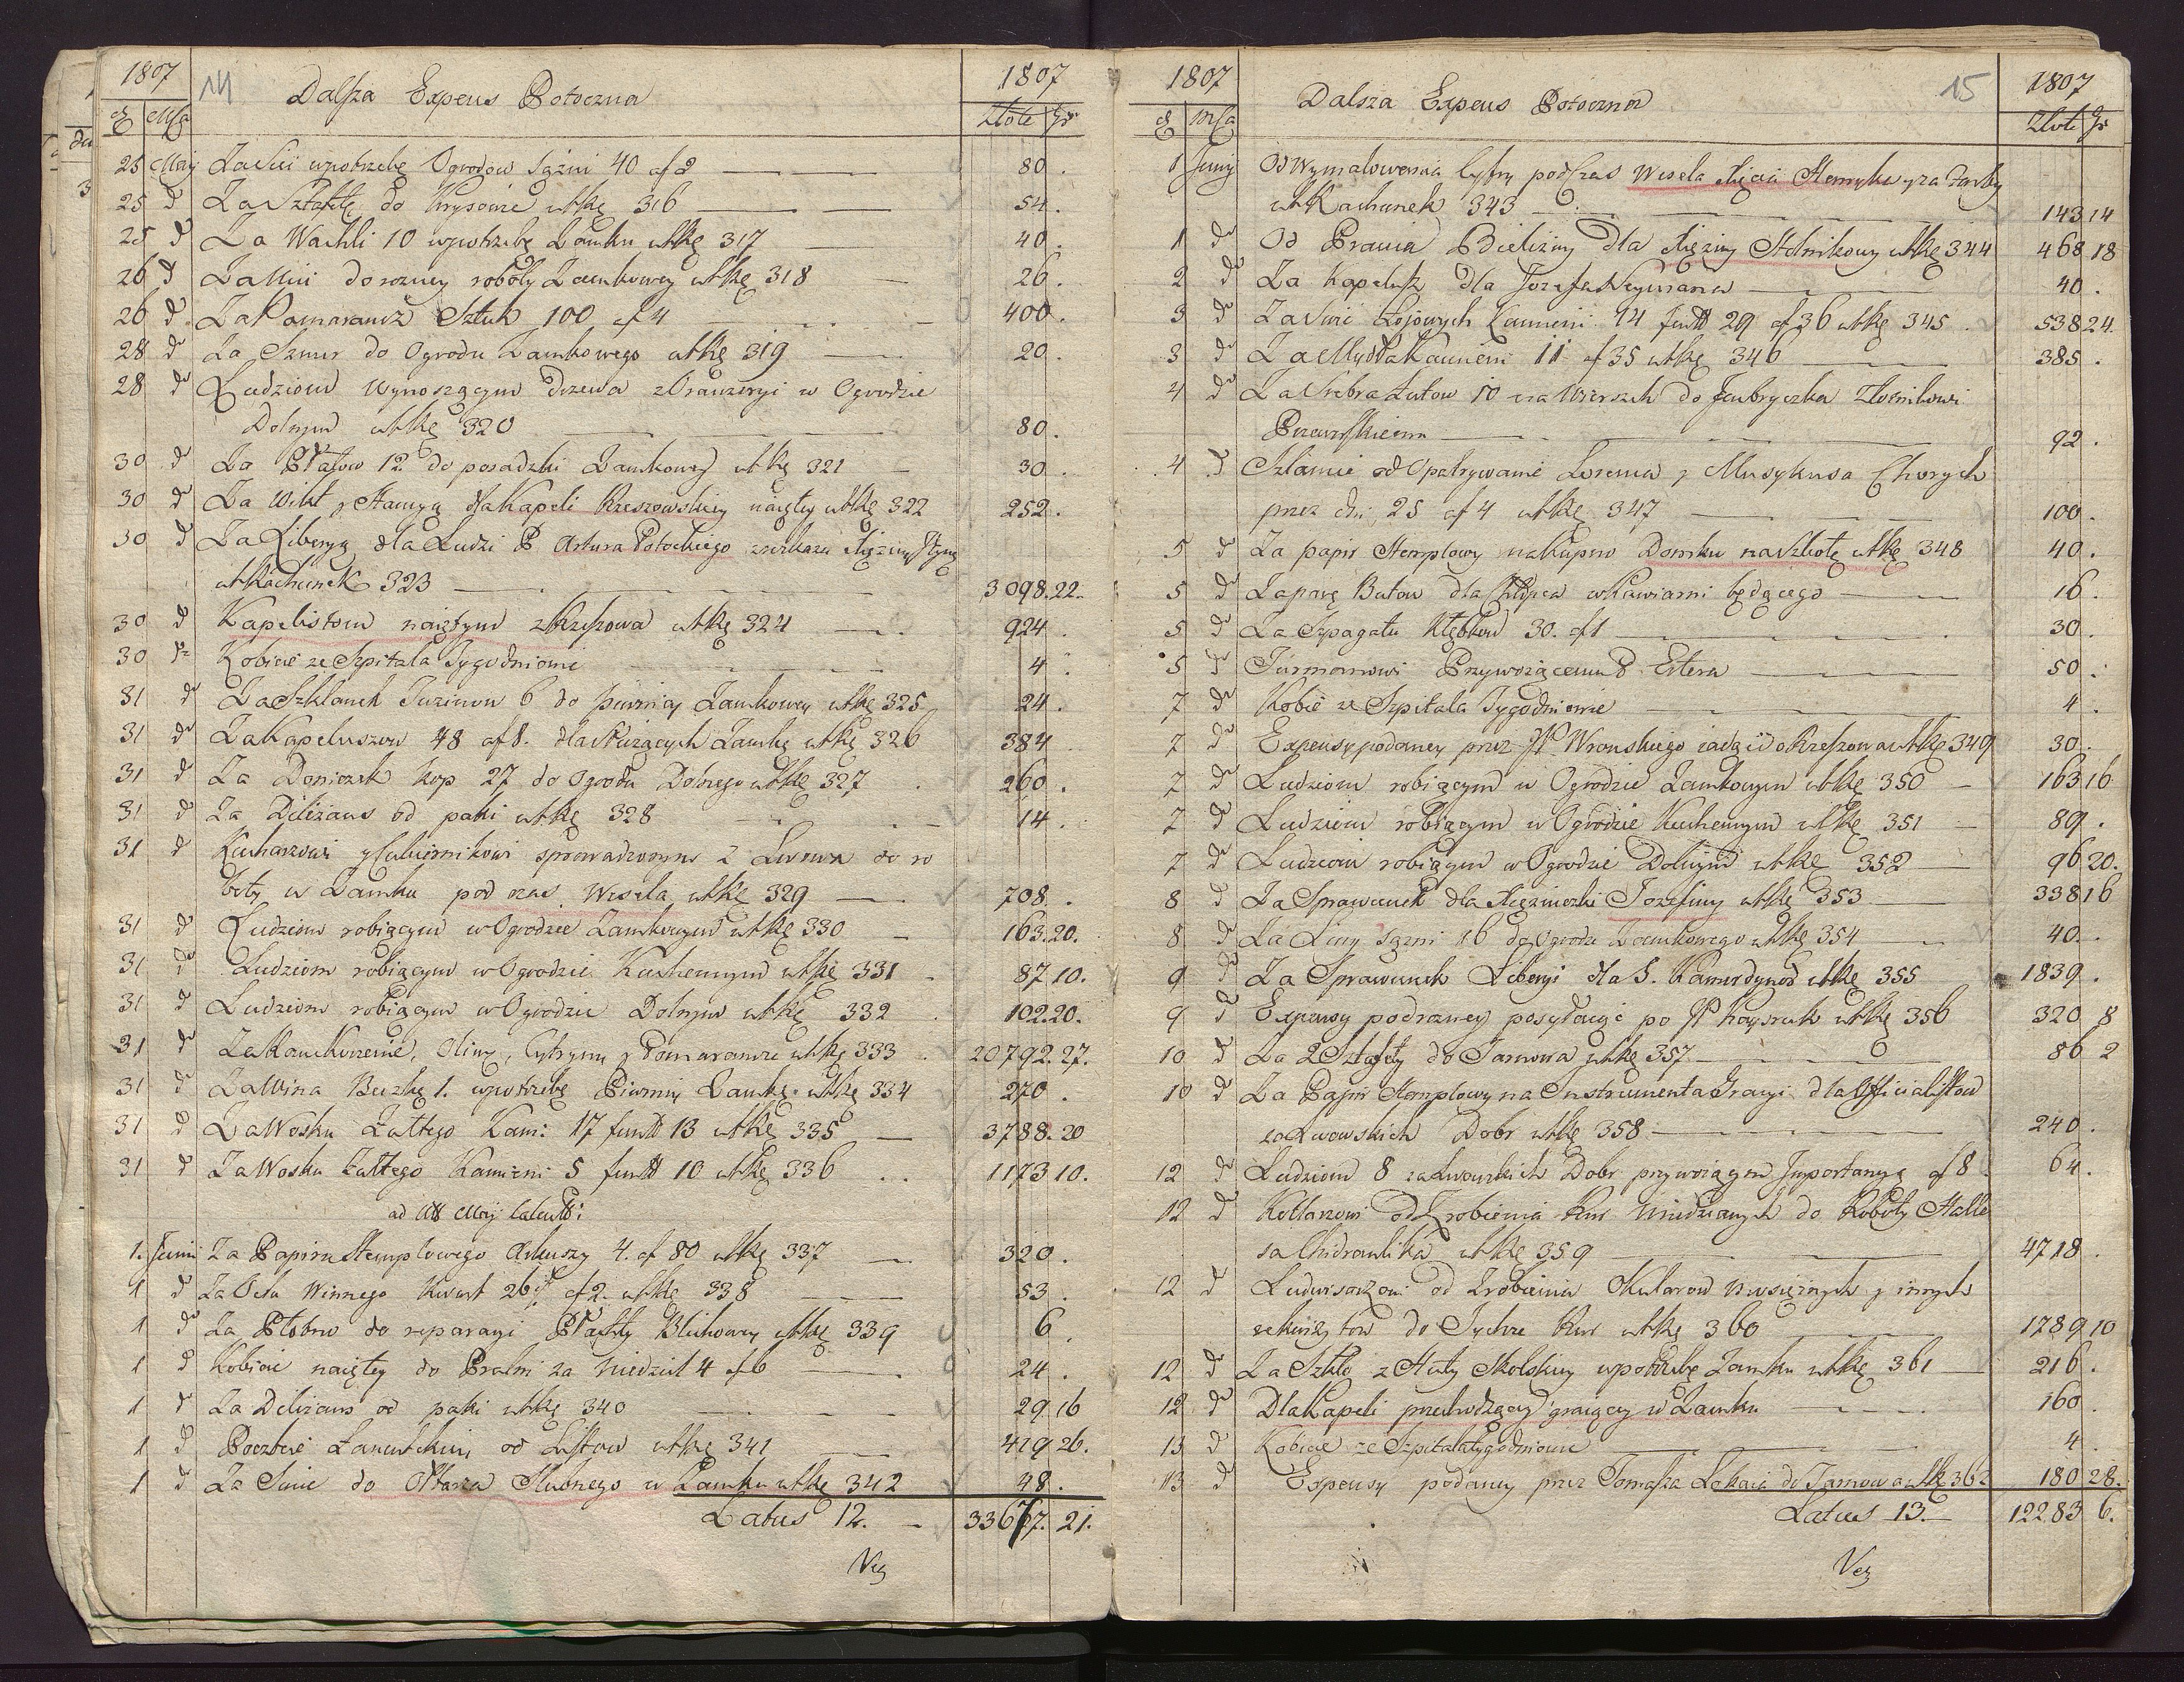 1807 14 Dalsza Expens Potoczna 1807
d Msca Złote Gr
25 Maij Za Sici wpotrzebę Ogrodow Sążni 40 af 2 80 .
25 d Za Sztafetę do Krysowic utkę 316 54 .
25 d Za Wachli 10 wpotrzebę Zamku utkę 317 40 .
26 d Za Nici do rozney roboty Zamkowey utkę 318 26 .
26 d Za Pomarancz Sztuk 100 af 4 400 .
28 d Za Sznur do Ogrodu Zamkowego utkę 319 20 .
28 d Ludziom wynoszącym Drzewa z Oranżeryi w Ogrodzie
Dolnym utkę 320 80 .
30 d Za Płatow 12 do posadzki Zamkowey utkę 321 30 .
30 d Za Wikt y Stancyą dla Kapeli Rzeszowskiey naiętey utkę 322 252 .
30 d Za Liberyą dla Ludzi P Artura Potockiego zrozkazu Xięzny Jtyney
utRachunek 323 3098.22.
30 d Kapelistom naiętym z Rzeszowa utkę 324 924 .
30 d Kobicie ze Szpitala Tygodniowie 4 .
31 d Za Szklanek Tuzinow 6 do piwnicy Zamkowey utkę 325 24 .
31 d Za Kapeluszow 48 af 8. dla Służących Zamku utkę 326 384
31 d Za Doniczek kop 27 do Ogrodu Dolnego utkę 327 260 .
31 d Za Diliżans od paki utkę 328 14 .
31 d Kucharzowi y Cukiernikowi sprowadzonym z Lwowa do ro
boty w Zamku pod czas Wesela utkę 329 708 .
31 d Ludziom robiącym w Ogrodzie Zamkowym utkę 330 163.20.
31 d Ludziom robiącym w Ogrodzie Kuchennym utkę 331 87 10.
31 d Ludziom robiącym w Ogrodzie Dolnym utkę 332 102.20.
31 d Za Korzenie, Oliwę, Cytryny y Pomarancze utkę 333 20792.27.
31 d Za Wina Beczkę 1. wpotrzebę Piwnicy Zamku utkę 334 270 .
31 d Za Wosku Zułtego Kami: 17 funtt 13 utkę 335 3788.20
31 d Za Wosku żułtego Kamieni 5 funtt 10 utkę 336 1173 10.
ad Ult Maij
1. Junii Za Papiru Stemplowego Arkuszy 4. af 80 utkę 337 320 .
1 d Za Octu Winnego Kwart 26½ af 2. utkę 338 53 .
1 d Za Płotno do reparacyi Płachty Blichowey utkę 339 6 .
1 d Kobicie naiętey do Pralni za Niedziel 4 af 6 24 .
1 d Za Deliżans od paki utkę 340 29 16
1 d Poczcie Łancutskiey od Listow utkę 341 419 26.
1 d Za Sucie do Ołtarza Slubnego w Zamku utkę 342 48 .
Latus 12. 33667. 21.
1807 Dalsza Expens Potoczna 15 1807
d Msca Złote Gr
1 Junij Od Wymalowania Cyfry podczas Wesela Xięcia Henryka y za Farby
utRachunek 343 143 14
1 d Od Prania Bielizny dla Xięzny Stolnikowy utkę 344 468 18
2 d Za Kapelusz dla Jozefa Neymana 40 .
3 d Za Swic Łojowych Kamieni 14 funtt 29 af 36 utkę 345 538 24.
3 d Za Mydła Kamieni 11 af 35 utkę 346 385 .
4 d Za Srebra Łutow 10 na Wierzch do Imbryczka Złotnikowi
92 .
4 d Szlamie od Opatrywania Lorenca y Muzykusa Chorych
przez dni 25 af 4 utkę 347 100 .
5 d Za papir Stemplowy nakupno Domku na Szkołę utkę 348 40 .
5 d Za parę Butow dla Chłopca w Kawiarni będącego 16 .
5 d Za Szpagatu Kłębkow 30. af 1 30 .
5 d Furmanowi Przywożącemu P Estera 50 .
7 d Kobic ze Szpitala Tygodniowie 4 .
7 d Expensy podaney przez JP Wronskiego iadąc do Rzeszowa utkę 349 30 .
7 d Ludziom robiącym w Ogrodzie Zamkowym utkę 350 163 16
7 d Ludziom robiącym w Ogrodzie Kuchennym utkę 351 89 .
7 d Ludziom robiącym w Ogrodzie Dolnym utkę 352 96 20.
8 d Za Sprawunek dla Xiężniczki Jozefiny utkę 353 338 16
8 d Za Liny sążni 16 do Ogrodu Zamkowego utkę 354 40 .
9 d Za Sprawunek Liberyi dla 5. Kamerdynow utkę 355 1839 .
9 d Expensy podrozney posyłaiąc po utkę 356 320 8
10 d Za 2 Sztafety do Tarnowa utkę 357 86 2
10 d Za Papir Stemplowy na Instrumenta Gracyi dla Officialistow
zaLwowskich Dobr utkę 358 240 .
12 d Ludziom 8 zaLwowskich Dobr przywożącym Importancyą af 8 64 .
12 d Kotlarzowi od Zrobienia Rur Miedzianych do Roboty Stalle
sa Chidraulika utkę 359 4718 .
12 d Ludwisarzowi od Zrobienia Skularow Mosiężnych y innych
rekwizytow do Tychże Rur utkę 360 1789 10
12 d Za Szkło z Huty Skolskiey wpotrzebę Zamku utkę 361 216 .
12 d Dla Kapeli przechodzącey graiącey w Zamku 160 .
13 d Kobicie ze Szpitala tygodniowie 4 .
13 d Expensy podaney przez Tomasza Lokaia do Tarnowa utkę 362 180 28.
Latus 13. 12283 6.